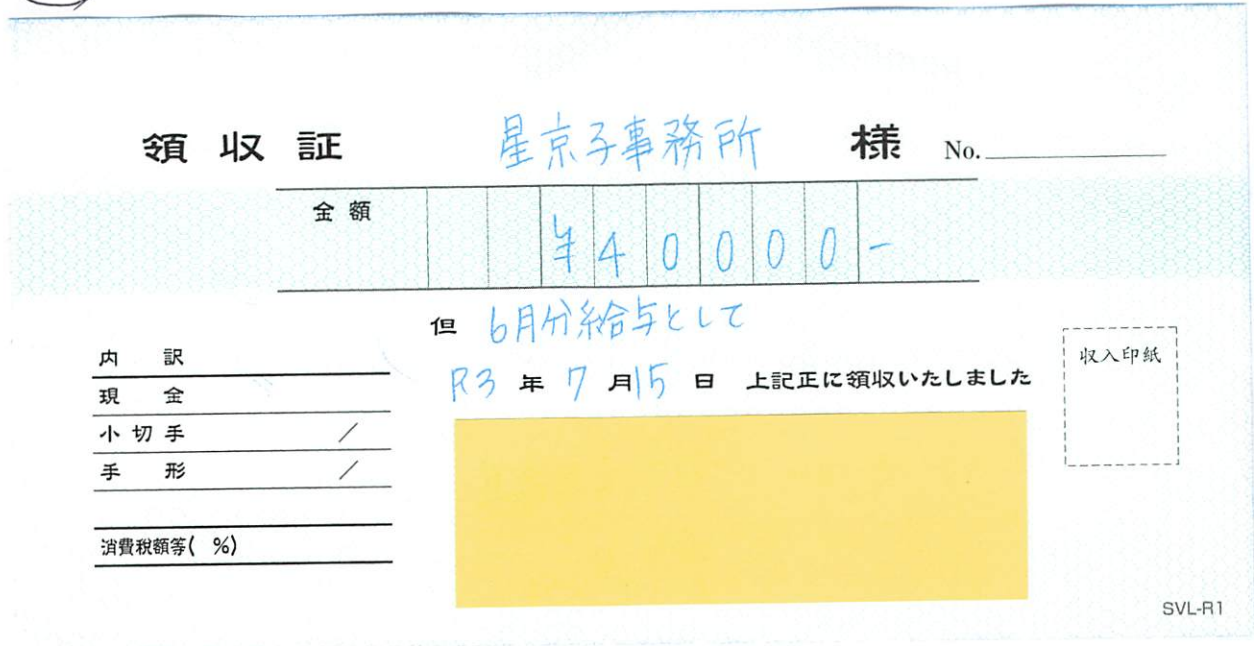 領収証 星京子事務所 様 No.
金額 ¥40000-
但 6月分給与として
R3年7月15日 上記正に領収いたしました
収入印紙
内訳
現金
小切手 /
手形 /
消費税額等( %)
SVL-R1